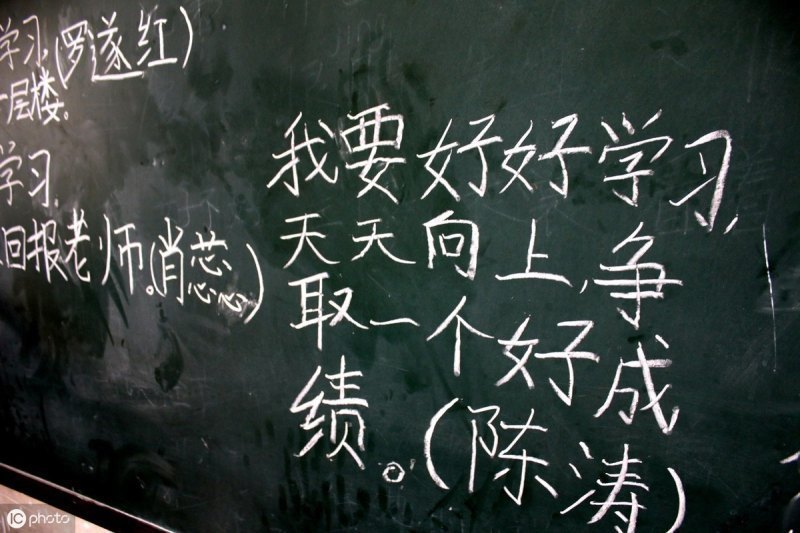 学习,(罗遂红)
一层楼。
学习,
回报老师。(肖蕊)
我要好好学习,
天天向上,争
取一个好成
绩。(陈涛)
iC photo